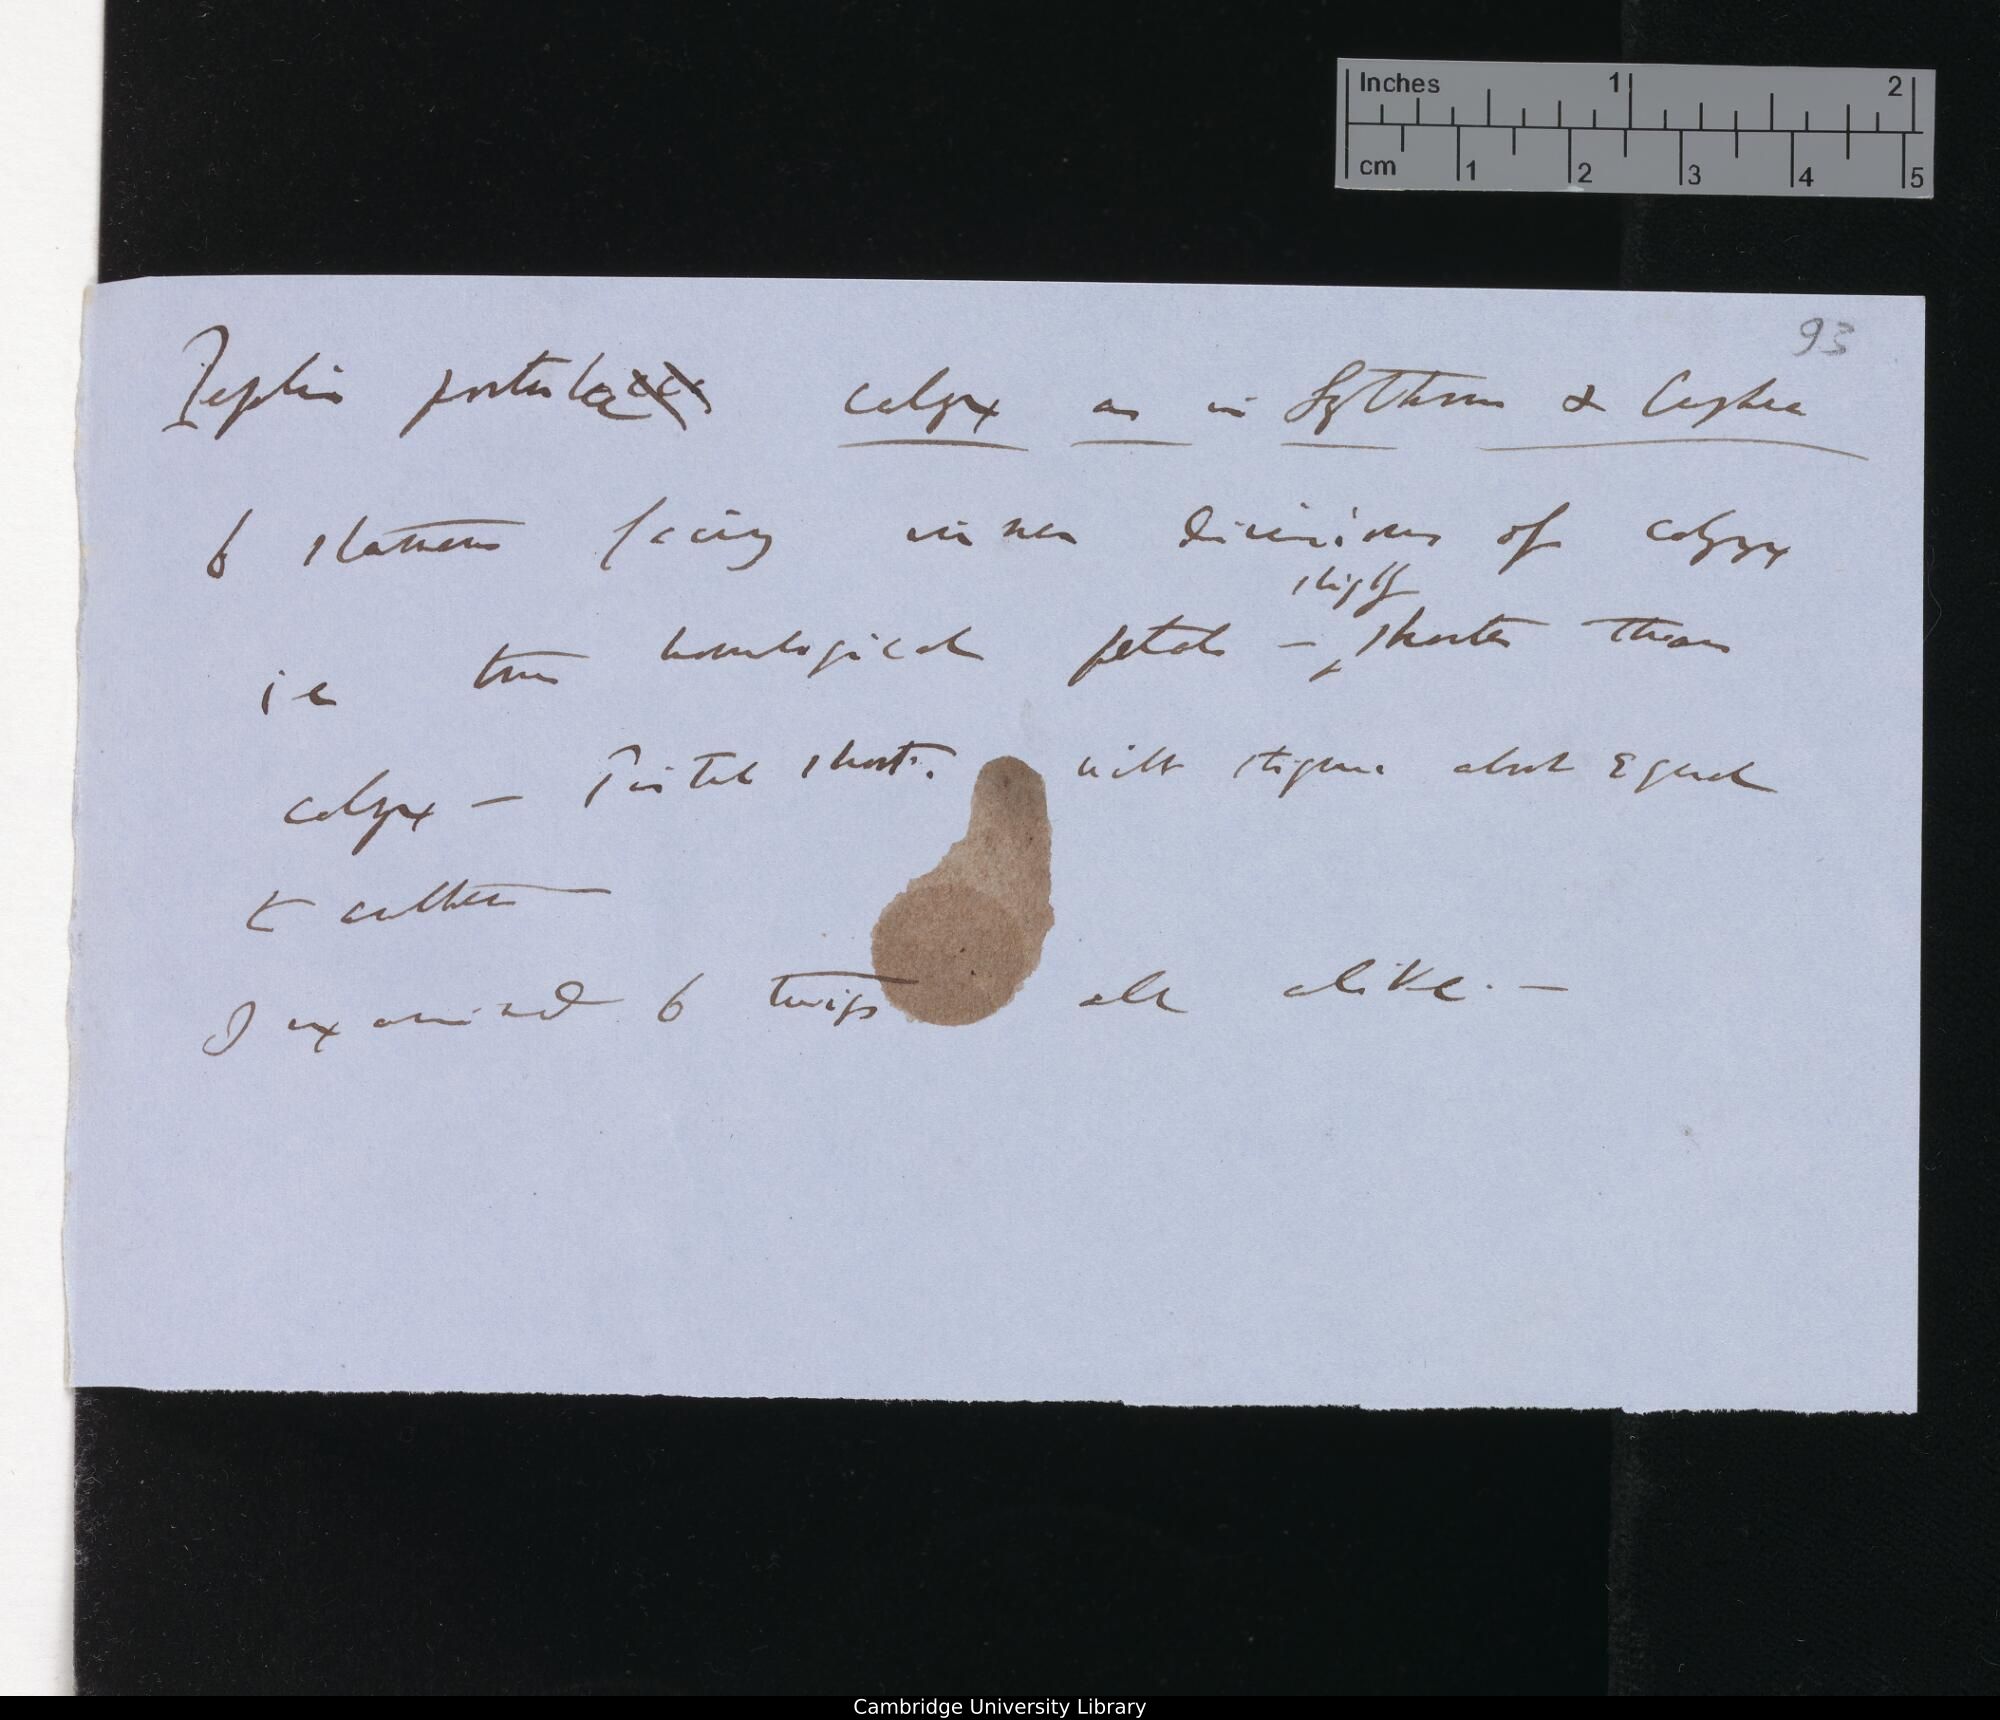 Inches 1 2
cm 1 2 3 4 5
93
Peplis portula calyx as in Lythrum & Cuphea
6 stamens facing inner divisions of calyx
slightly
ie true homological petals — shorter than
calyx — Pistil short. with stigma about equal
to anthers
I examined 6 twigs all alike. —
Cambridge University Library